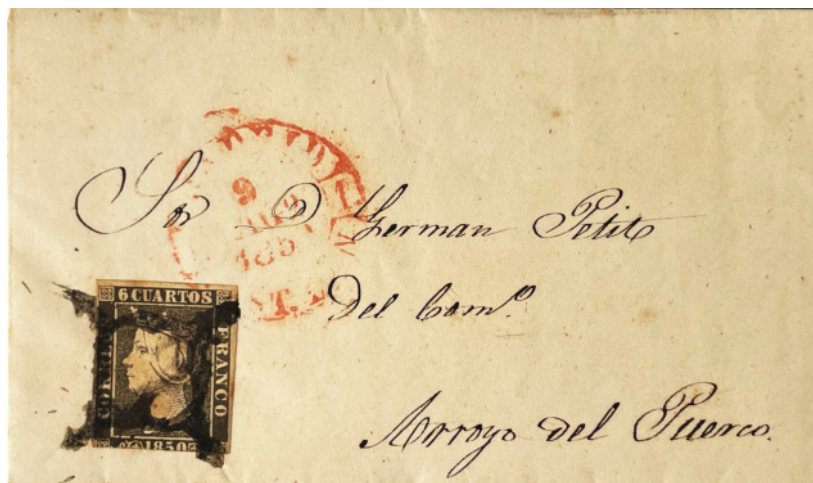 Sor D German Petit
Del Comº.
Arroyo del Puerco.
6 CUARTOS
CORREOS
FRANCO
1850